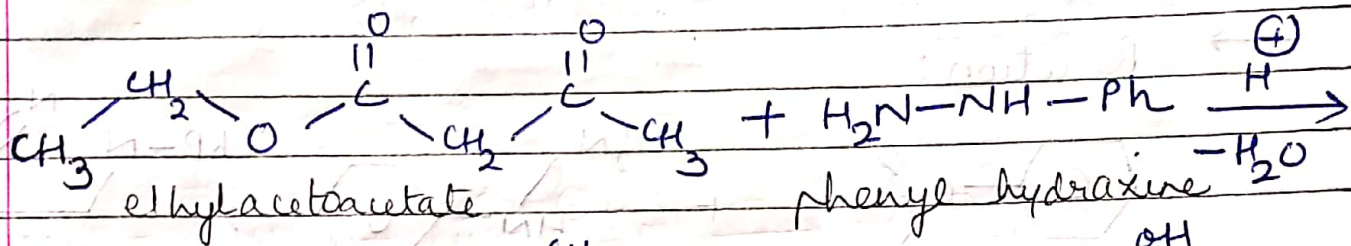 O O ⊕
CH₂ || || H
CH₃ O C CH₂ C CH₃ + H₂N—NH—Ph ⟶
−H₂O
ethylacetoacetate phenyl hydraxine
OH